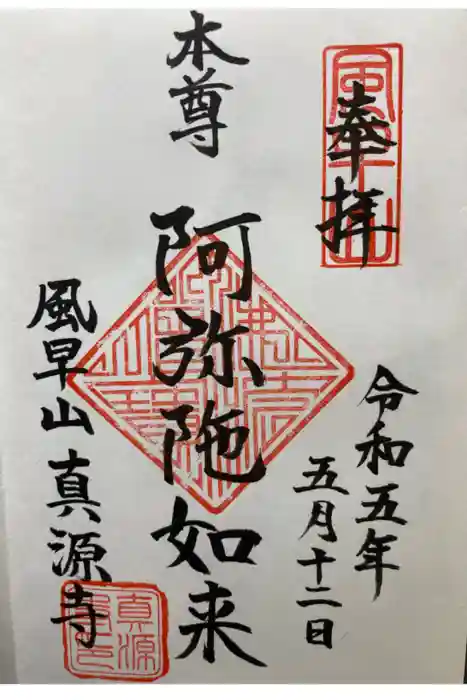 奉拝
令和五年
五月十二日
本尊
阿弥陀如来
風早山 真源寺
風早山
真源